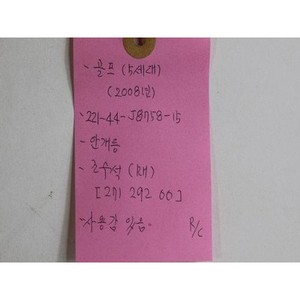 - 골프 (5세대)
(2008년)
- 221-44-J8758-15
- 안개등
- 조수석 (RH)
[271 292 00]
- 사용감 있음 -
R/C